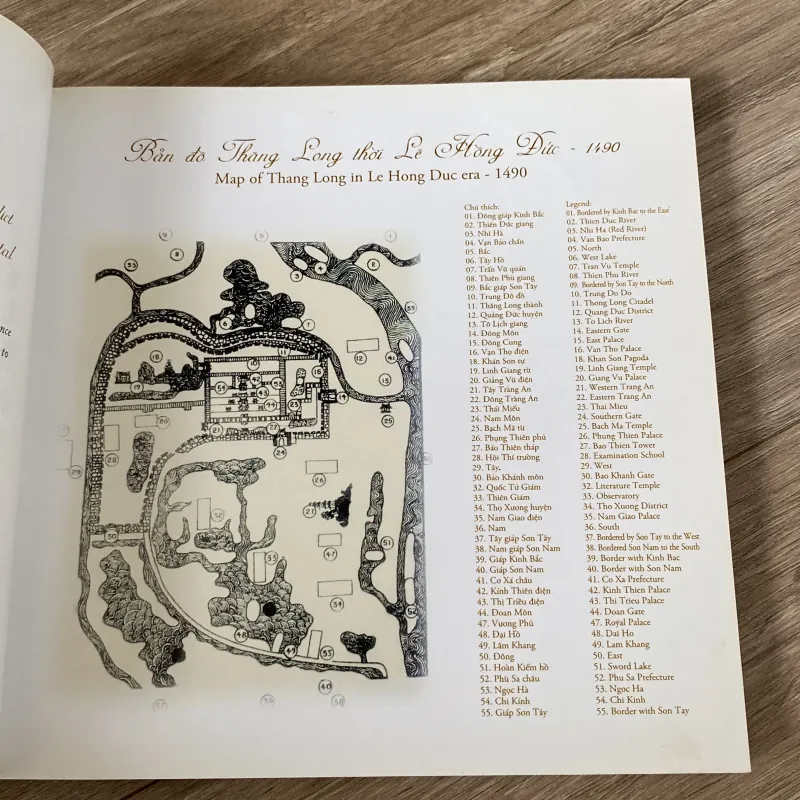 Bản đồ Thăng Long thời Lê Hồng Đức - 1490
Map of Thang Long in Le Hong Duc era - 1490
Chú thích:
01. Đông giáp Kinh Bắc
02. Thiên Đức giang
03. Nhĩ Hà
04. Vạn Bảo chấn
05. Bắc
06. Tây Hồ
07. Trấn Vũ quán
08. Thiên Phù giang
09. Bắc giáp Sơn Tây
10. Trung Đô đồ
11. Thăng Long thành
12. Quảng Đức huyện
13. Tô Lịch giang
14. Đông Môn
15. Đông Cung
16. Vạn Thọ điện
18. Khán Sơn tự
19. Linh Giang từ
20. Giảng Vũ điện
21. Tây Tràng An
22. Đông Tràng An
23. Thái Miếu
24. Nam Môn
25. Bạch Mã từ
26. Phụng Thiên phủ
27. Báo Thiên tháp
28. Hội Thí trường
29. Tây,
30. Bảo Khánh môn
32. Quốc Tử Giám
33. Thiên Giám
34. Thọ Xương huyện
35. Nam Giao điện
36. Nam
37. Tây giáp Sơn Tây
38. Nam giáp Sơn Nam
39. Giáp Kinh Bắc
40. Giáp Sơn Nam
41. Cơ Xá châu
42. Kính Thiên điện
43. Thị Triều điện
44. Đoan Môn
47. Vương Phủ
48. Đại Hồ
49. Lâm Khang
50. Đông
51. Hoàn Kiếm hồ
52. Phù Sa châu
53. Ngọc Hà
54. Chi Kính
55. Giáp Sơn Tây
Legend:
01. Bordered by Kinh Bac to the East
02. Thien Duc River
03. Nhi Ha (Red River)
04. Van Bao Prefecture
05. North
06. West Lake
07. Tran Vu Temple
08. Thien Phu River
09. Bordered by Son Tay to the North
10. Trung Do Do
11. Thong Long Citadel
12. Quang Duc District
13. To Lich River
14. Eastern Gate
15. East Palace
16. Van Tho Palace
18. Khan Son Pagoda
19. Linh Giang Temple
20. Giang Vu Palace
21. Western Trang An
22. Eastern Trang An
23. Thai Mieu
24. Southern Gate
25. Bach Ma Temple
26. Phung Thien Palace
27. Bao Thien Tower
28. Examination School
29. West
30. Bao Khanh Gate
32. Literature Temple
33. Observatory
34. Tho Xuong District
35. Nam Giao Palace
36. South
37. Bordered by Son Tay to the West
38. Bordered Son Nam to the South
39. Border with Kinh Bac
40. Border with Son Nam
41. Co Xa Prefecture
42. Kinh Thien Palace
43. Thi Trieu Palace
44. Doan Gate
47. Royal Palace
48. Dai Ho
49. Lam Khang
50. East
51. Sword Lake
52. Phu Sa Prefecture
53. Ngoc Ha
54. Chi Kinh
55. Border with Son Tay